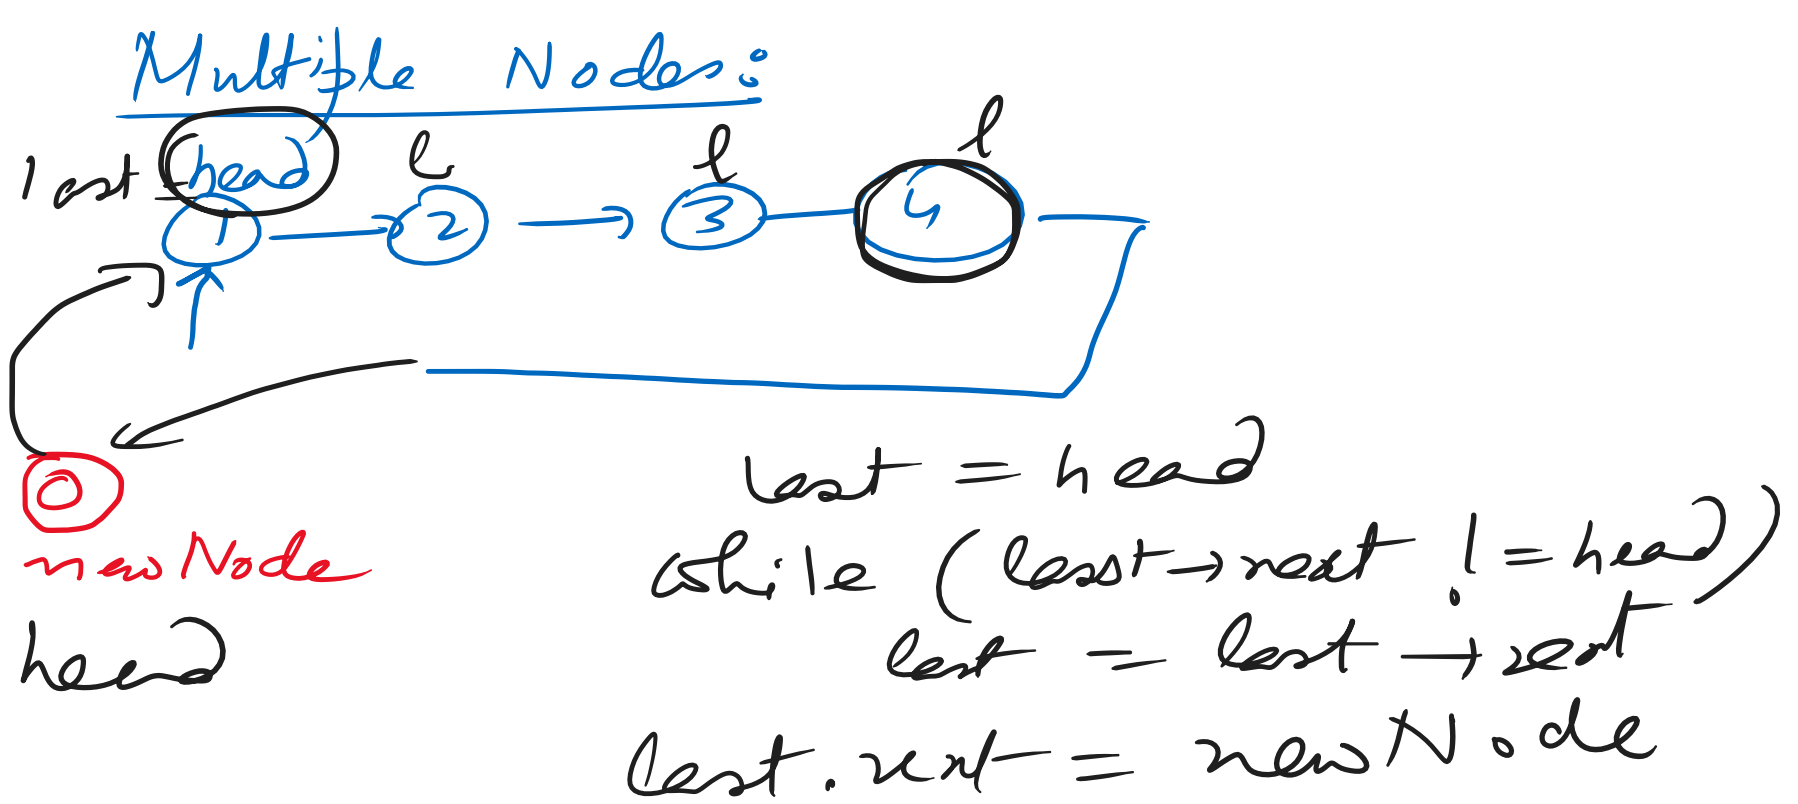 Multiple Nodes:
last = head l l l
1 2 3 4
0
newNode
head
last = head
while (last→next != head)
last = last → next
last.next = newNode